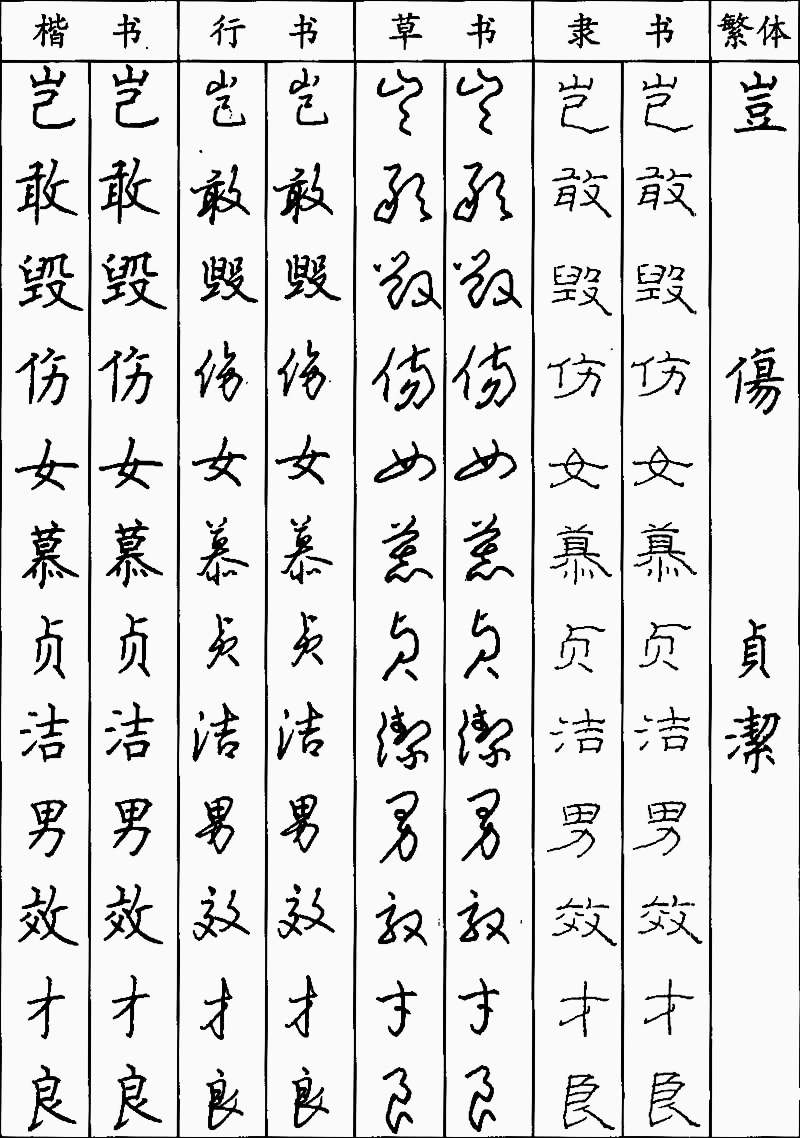 楷书 行书 草书 隶书 繁体
岂 岂 岂 岂 岂 岂 岂 岂 豈
敢 敢 敢 敢 敢 敢 敢 敢
毁 毁 毁 毁 毁 毁 毁 毁
伤 伤 伤 伤 伤 伤 伤 伤 傷
女 女 女 女 女 女 女 女
慕 慕 慕 慕 慕 慕 慕 慕
贞 贞 贞 贞 贞 贞 贞 贞 貞
洁 洁 洁 洁 潔 潔 洁 洁 潔
男 男 男 男 男 男 男 男
效 效 效 效 效 效 效 效
才 才 才 才 才 才 才 才
良 良 良 良 良 良 良 良